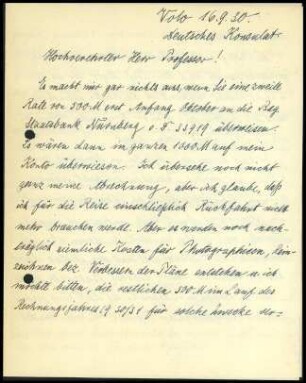 Volo 16.9.30.
Deutsches Konsulat
Hochverehrter Herr Professor!
Es macht mir gar nichts aus, wenn Sie eine zweite
Rate von 500 M erst Anfang Oktober an die Bay.
Staatsbank Nürnberg 33919 überweisen.
Es wären dann im ganzen 1500 M auf mein
Konto überwiesen. Ich übersehe noch nicht
ganz meine Abrechnung, aber ich glaube, daß
ich für die Reise einschließlich Rückfahrt nicht
mehr brauchen werde. Aber es werden noch nach-
träglich ziemliche Kosten für Photographieen, Rein-
zeichnen bez. Verbessern der Pläne entstehen u. ich
möchte bitten, die restlichen 500 M im Lauf des
Rechnungsjahres 1930/31 für solche Zwecke